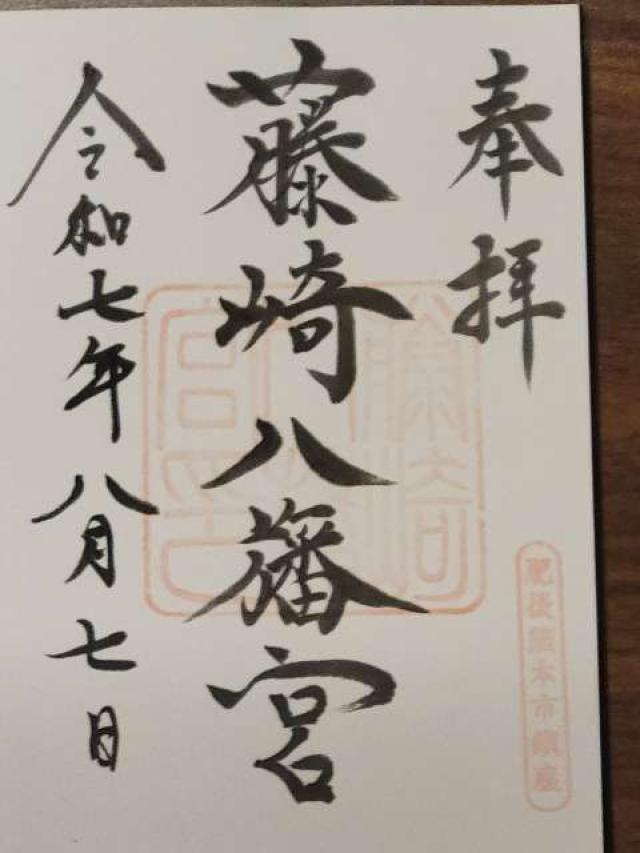 奉拝
肥後熊本市鎮座
藤崎八旛宮
令和七年八月七日